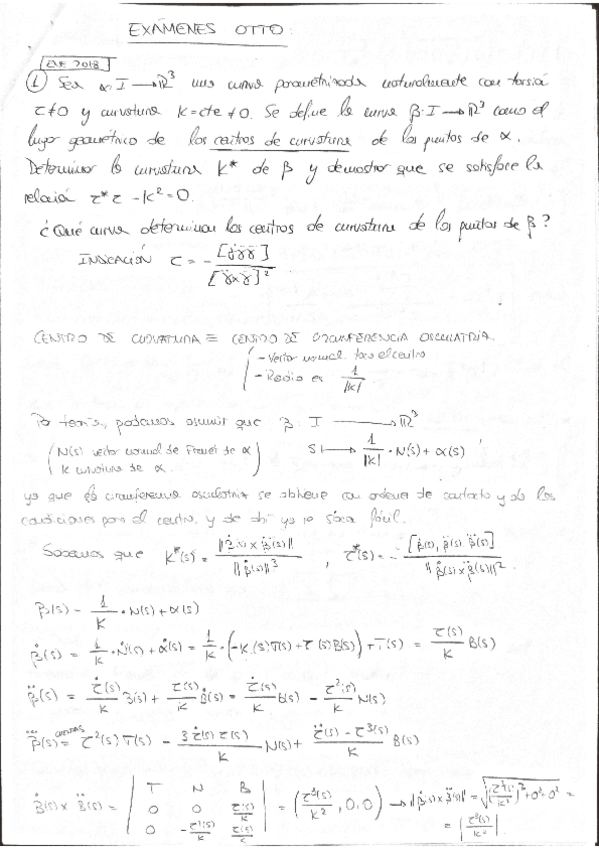 EXÁMENES OTTO:
ENE 2018
① Sea α: I → ℝ³ una curva parametrizada naturalmente con torsión
τ≠0 y curvatura K=cte≠0. Se define la curva β: I → ℝ³ como el
lugar geométrico de los centros de curvatura de los puntos de α.
Determinar la curvatura K* de β y demostrar que se satisface la
relación τ*τ - K² = 0.
¿Qué curva determinan los centros de curvatura de los puntos de β?
INDICACIÓN τ = - [γ̇ γ̈ γ⃛] / [γ̇×γ̈]²
CENTRO DE CURVATURA ≡ CENTRO DE CIRCUNFERENCIA OSCULATRIZ.
- Vector normal hacia el centro
- Radio es 1/|K|
Por teoría, podemos asumir que β: I → ℝ³
(N(s) vector normal de Frenet de α S ↦ 1/|K| · N(s) + α(s),
K curvatura de α)
ya que la circunferencia osculatriz se obtiene con orden de contacto y de las
condiciones para el centro, y de ahí ya se saca fácil.
Sabemos que K*(s) = ||β̇(s) × β̈(s)|| / ||β̇(s)||³ , τ*(s) = - [β̇(s), β̈(s), β⃛(s)] / ||β̇(s)×β̈(s)||²
β(s) = 1/K · N(s) + α(s)
β̇(s) = 1/K · Ṅ(s) + α̇(s) = 1/K · (-K(s)T(s) + τ(s)B(s)) + T(s) = τ(s)/K B(s)
β̈(s) = τ̇(s)/K B(s) + τ(s)/K Ḃ(s) = τ̇(s)/K B(s) - τ²(s)/K N(s)
β⃛(s) =(CUENTAS) τ²(s) T(s) - 3τ̇(s)τ(s)/K N(s) + τ̈(s) - τ³(s)/K B(s)
β̇(s) × β̈(s) = | T N B | = (τ³(s)/K², 0, 0) → ||β̇(s)×β̈(s)|| = √((τ³(s)/K²)² + 0² + 0²) =
| 0 0 τ(s)/K |
| 0 -τ²(s)/K τ̇(s)/K | = |τ³(s)/K²|